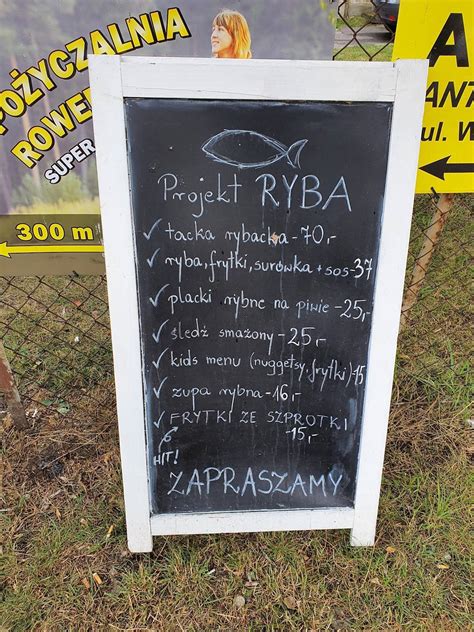 POŻYCZALNIA
ROWER
SUPER
300 m
A
ANT
ul. W
Projekt RYBA
✓ tacka rybacka - 70,-
✓ ryba, frytki, surówka + sos - 37
✓ placki rybne na piwie - 25,-
✓ śledź smażony - 25,-
✓ kids menu (nuggetsy, frytki) 15
✓ zupa rybna - 16,-
✓ FRYTKI ZE SZPROTKI
15,-
HIT!
ZAPRASZAMY